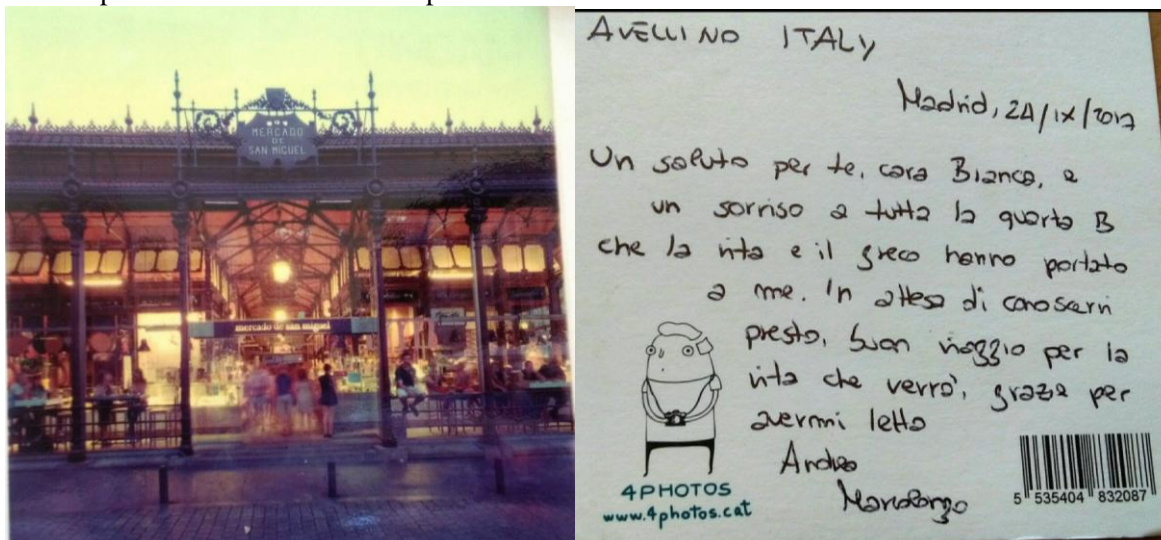 MERCADO
DE
SAN MIGUEL
mercado de san miguel
AVELLINO ITALY
Madrid, 24/IX/2017
Un saluto per te, cara Bianca, e
un sorriso a tutta la quarta B
che la vita e il greco hanno portato
a me. In attesa di conoscervi
presto, buon viaggio per la
vita che verrà, grazie per
avermi letto
Andrea
Marcolongo
4PHOTOS
www.4photos.cat
5 535404 832087